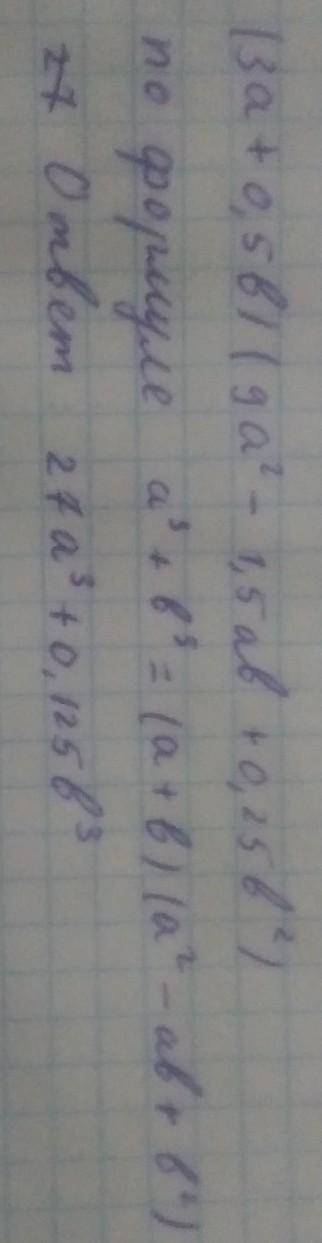 (3a + 0,5b)(9a² - 1,5ab + 0,25b²)
по формуле a³ + b³ = (a + b)(a² - ab + b²)
27 Ответ 27a³ + 0,125b³